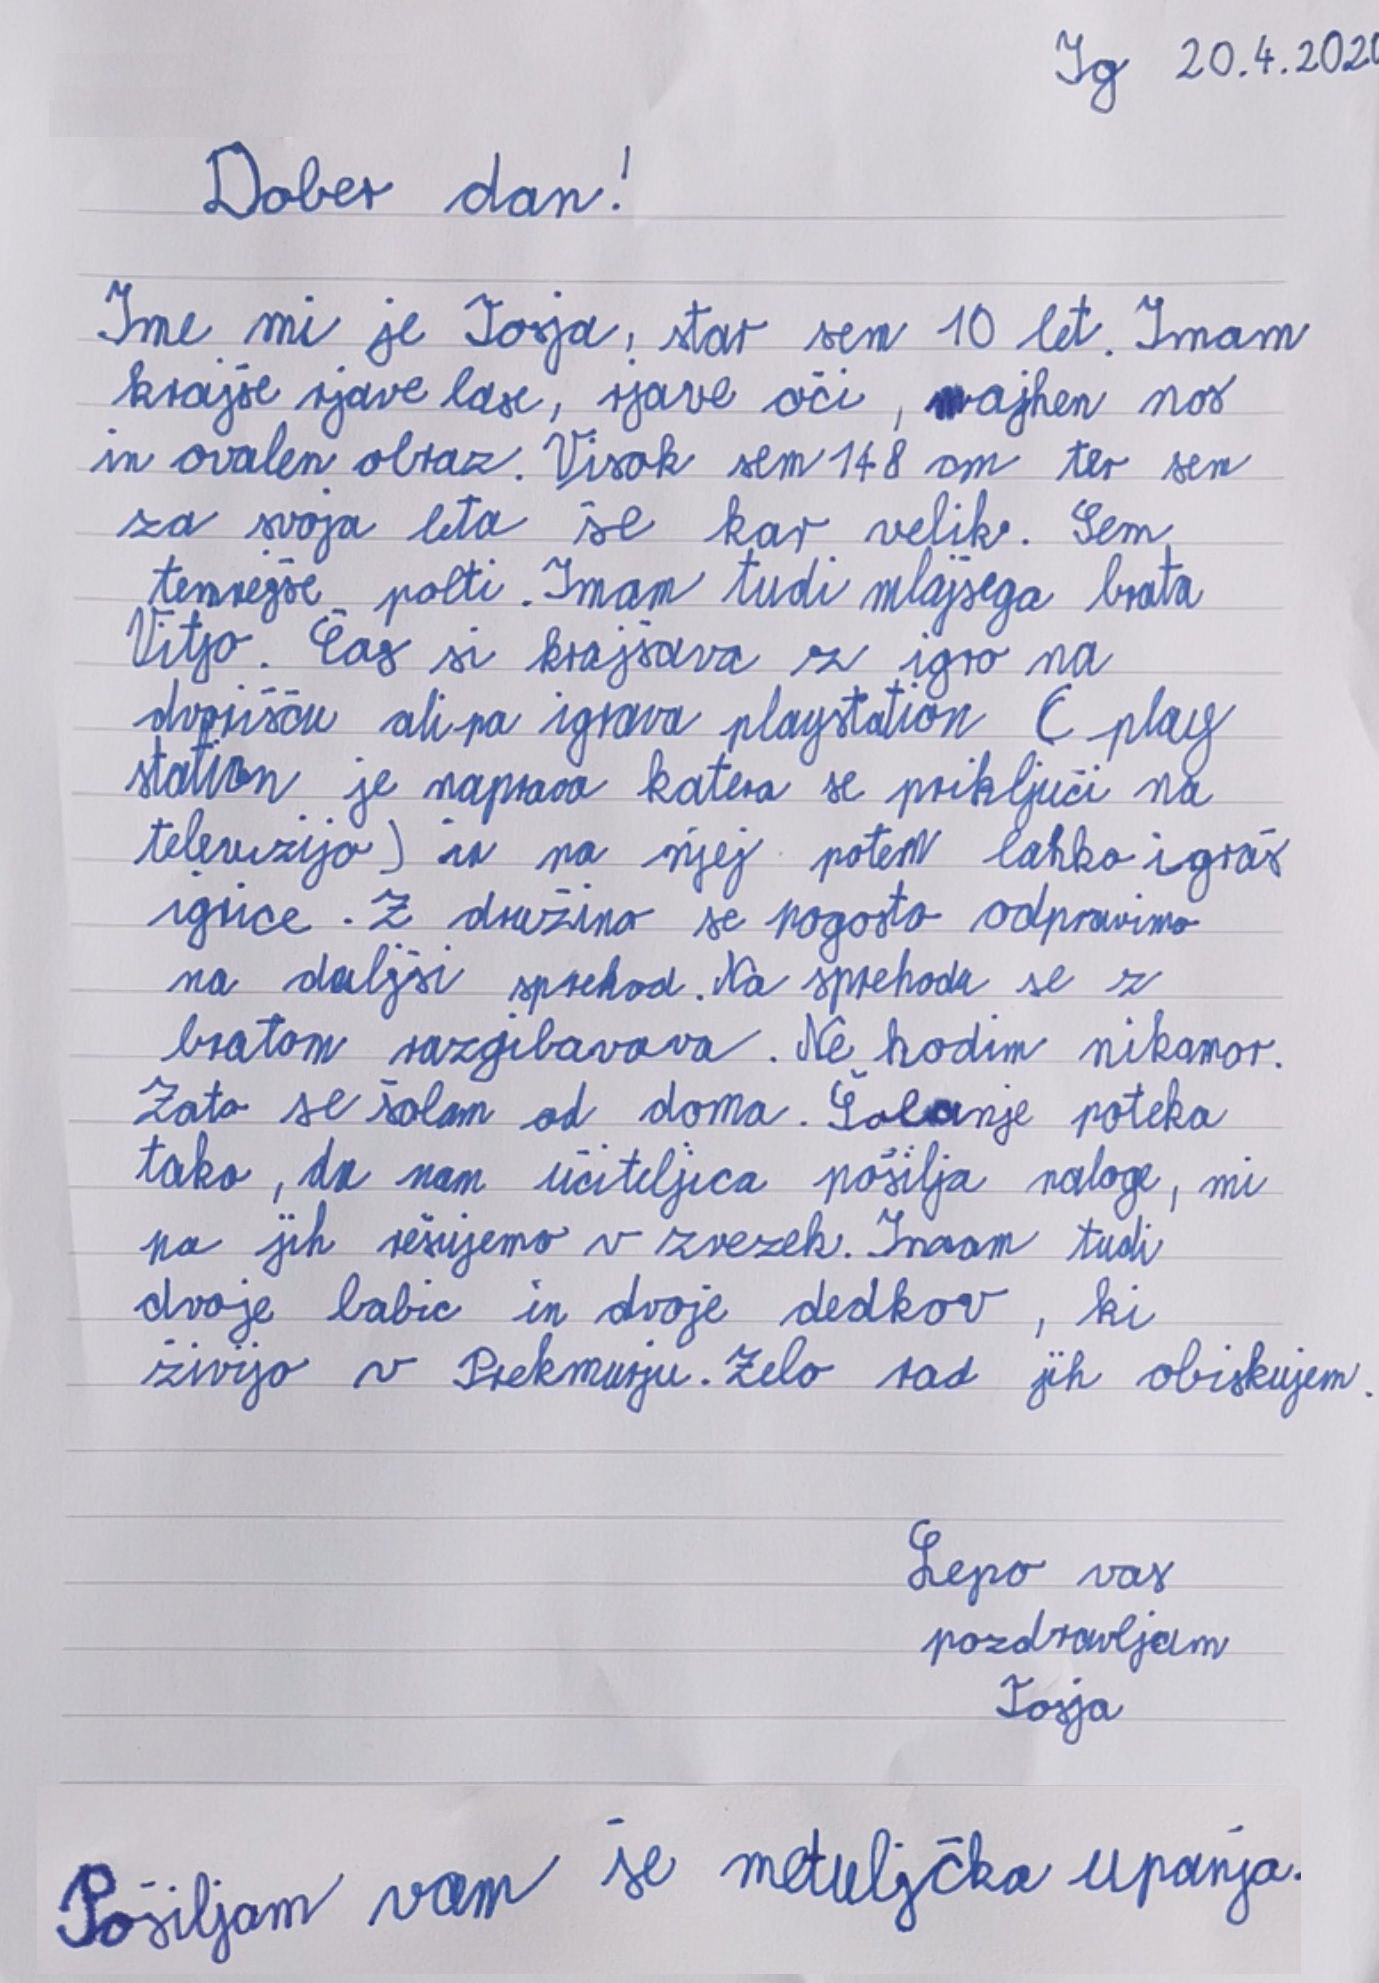 Ig 20.4.2020
Dober dan!
Ime mi je Tosja, star sem 10 let. Imam
krajše rjave lase, rjave oči, majhen nos
in ovalen obraz. Visok sem 148 cm ter sem
za svoja leta še kar velik. Sem
temnejše polti. Imam tudi mlajšega brata
Vitjo. Čas si krajšava z igro na
dvorišču ali pa igrava playstation (play
station je naprava katera se priključi na
televizijo) in na njej potem lahko igraš
igrice. Z družino se pogosto odpravimo
na daljši sprehod. Na sprehodu se z
bratom razgibavava. Ne hodim nikamor.
Zato se šolam od doma. Šolanje poteka
tako, da nam učiteljica pošilja naloge, mi
pa jih rešujemo v zvezek. Imam tudi
dvoje babic in dvoje dedkov, ki
živijo v Prekmurju. Zelo rad jih obiskujem.
Lepo vas
pozdravljam
Tosja
Pošiljam vam še metuljčka upanja.